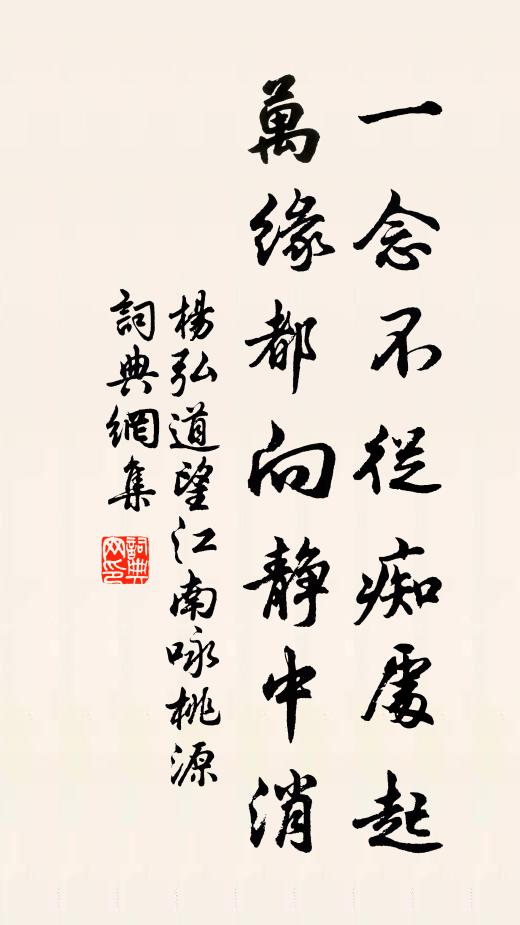 一念不從痴處起
萬緣都向静中消
楊弘道望江南咏桃源
詞典網集
詞典網印